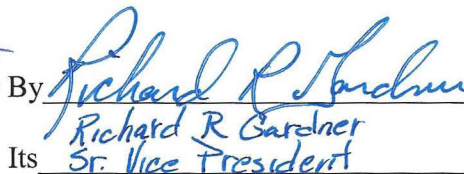 By Richard R Gardner
Richard R Gardner
Its Sr. Vice President